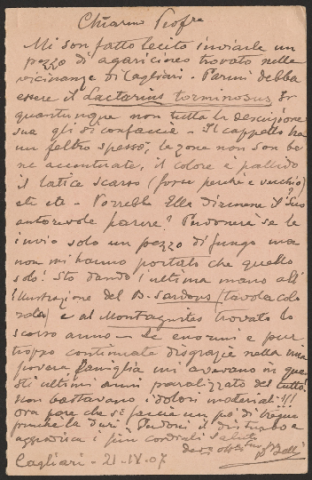 Chiarmo Profre
Mi son fatto lecito inviarle un
pezzo di agaricineo trovato nelle
vicinanze di Cagliari - Parmi debba
essere il Lactarius torminosus Fr
quantunque non tutta la descrizione
sua gli si confaccia - Il cappello ha
un feltro spesso, le zone non son be
ne accentuate, il colore è pallido
il latice scarso (forse perché è vecchio)
etc etc - Vorrebbe Ella dirmene il Suo
autorevole parere? Perdonerà se le
invio solo un pezzo di fungo ma
non mi hanno portato che quello
solo! Sto dando l'ultima mano all'
illustrazione del B. Sardous (tavola colo
rata) e al Montagnites trovato lo
scorso anno - Le enormi e pur
troppo continuate disgrazie nella mia
povera famiglia mi avevano in que
sti ultimi anni paralizzato del tutto!
Non bastavano i dolori materiali!!!
Ora pare che si faccia un po' di tregua
purché la duri Perdoni il disturbo e
aggradisca i più cordiali saluti
Cagliari - 21-IX-07